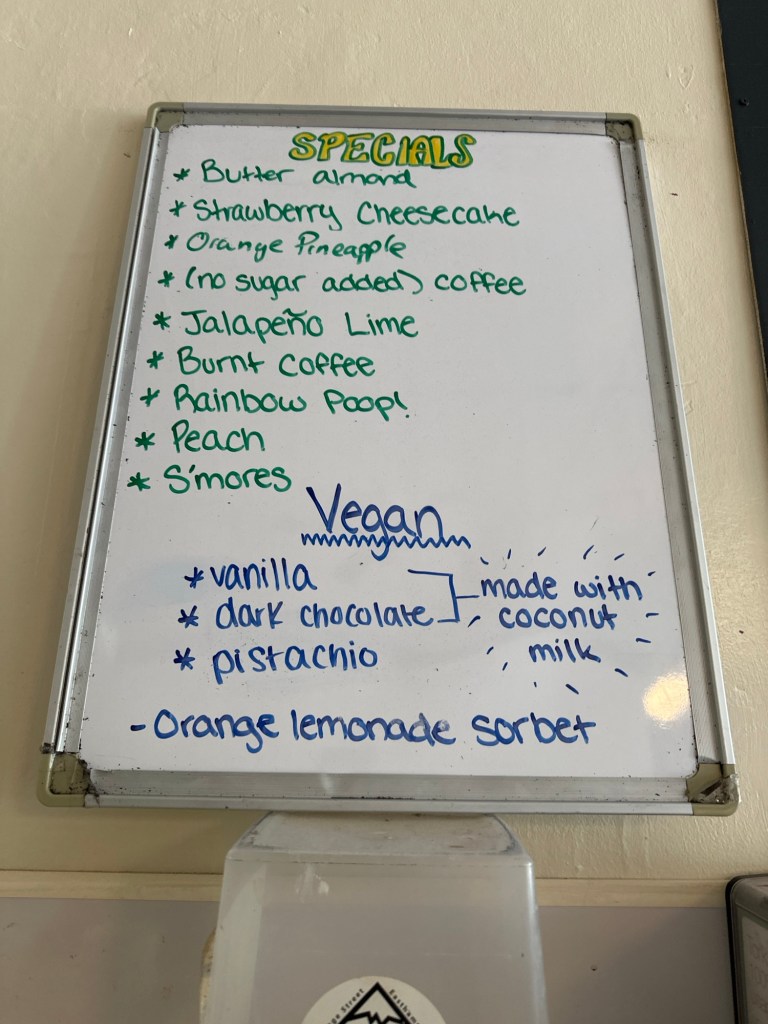 SPECIALS
* Butter almond
* Strawberry Cheesecake
* Orange Pineapple
* (no sugar added) coffee
* Jalapeño Lime
* Burnt Coffee
* Rainbow Poop!
* Peach
* S'mores
Vegan
* vanilla
* dark chocolate
made with
coconut
milk
* pistachio
- Orange lemonade sorbet
Street